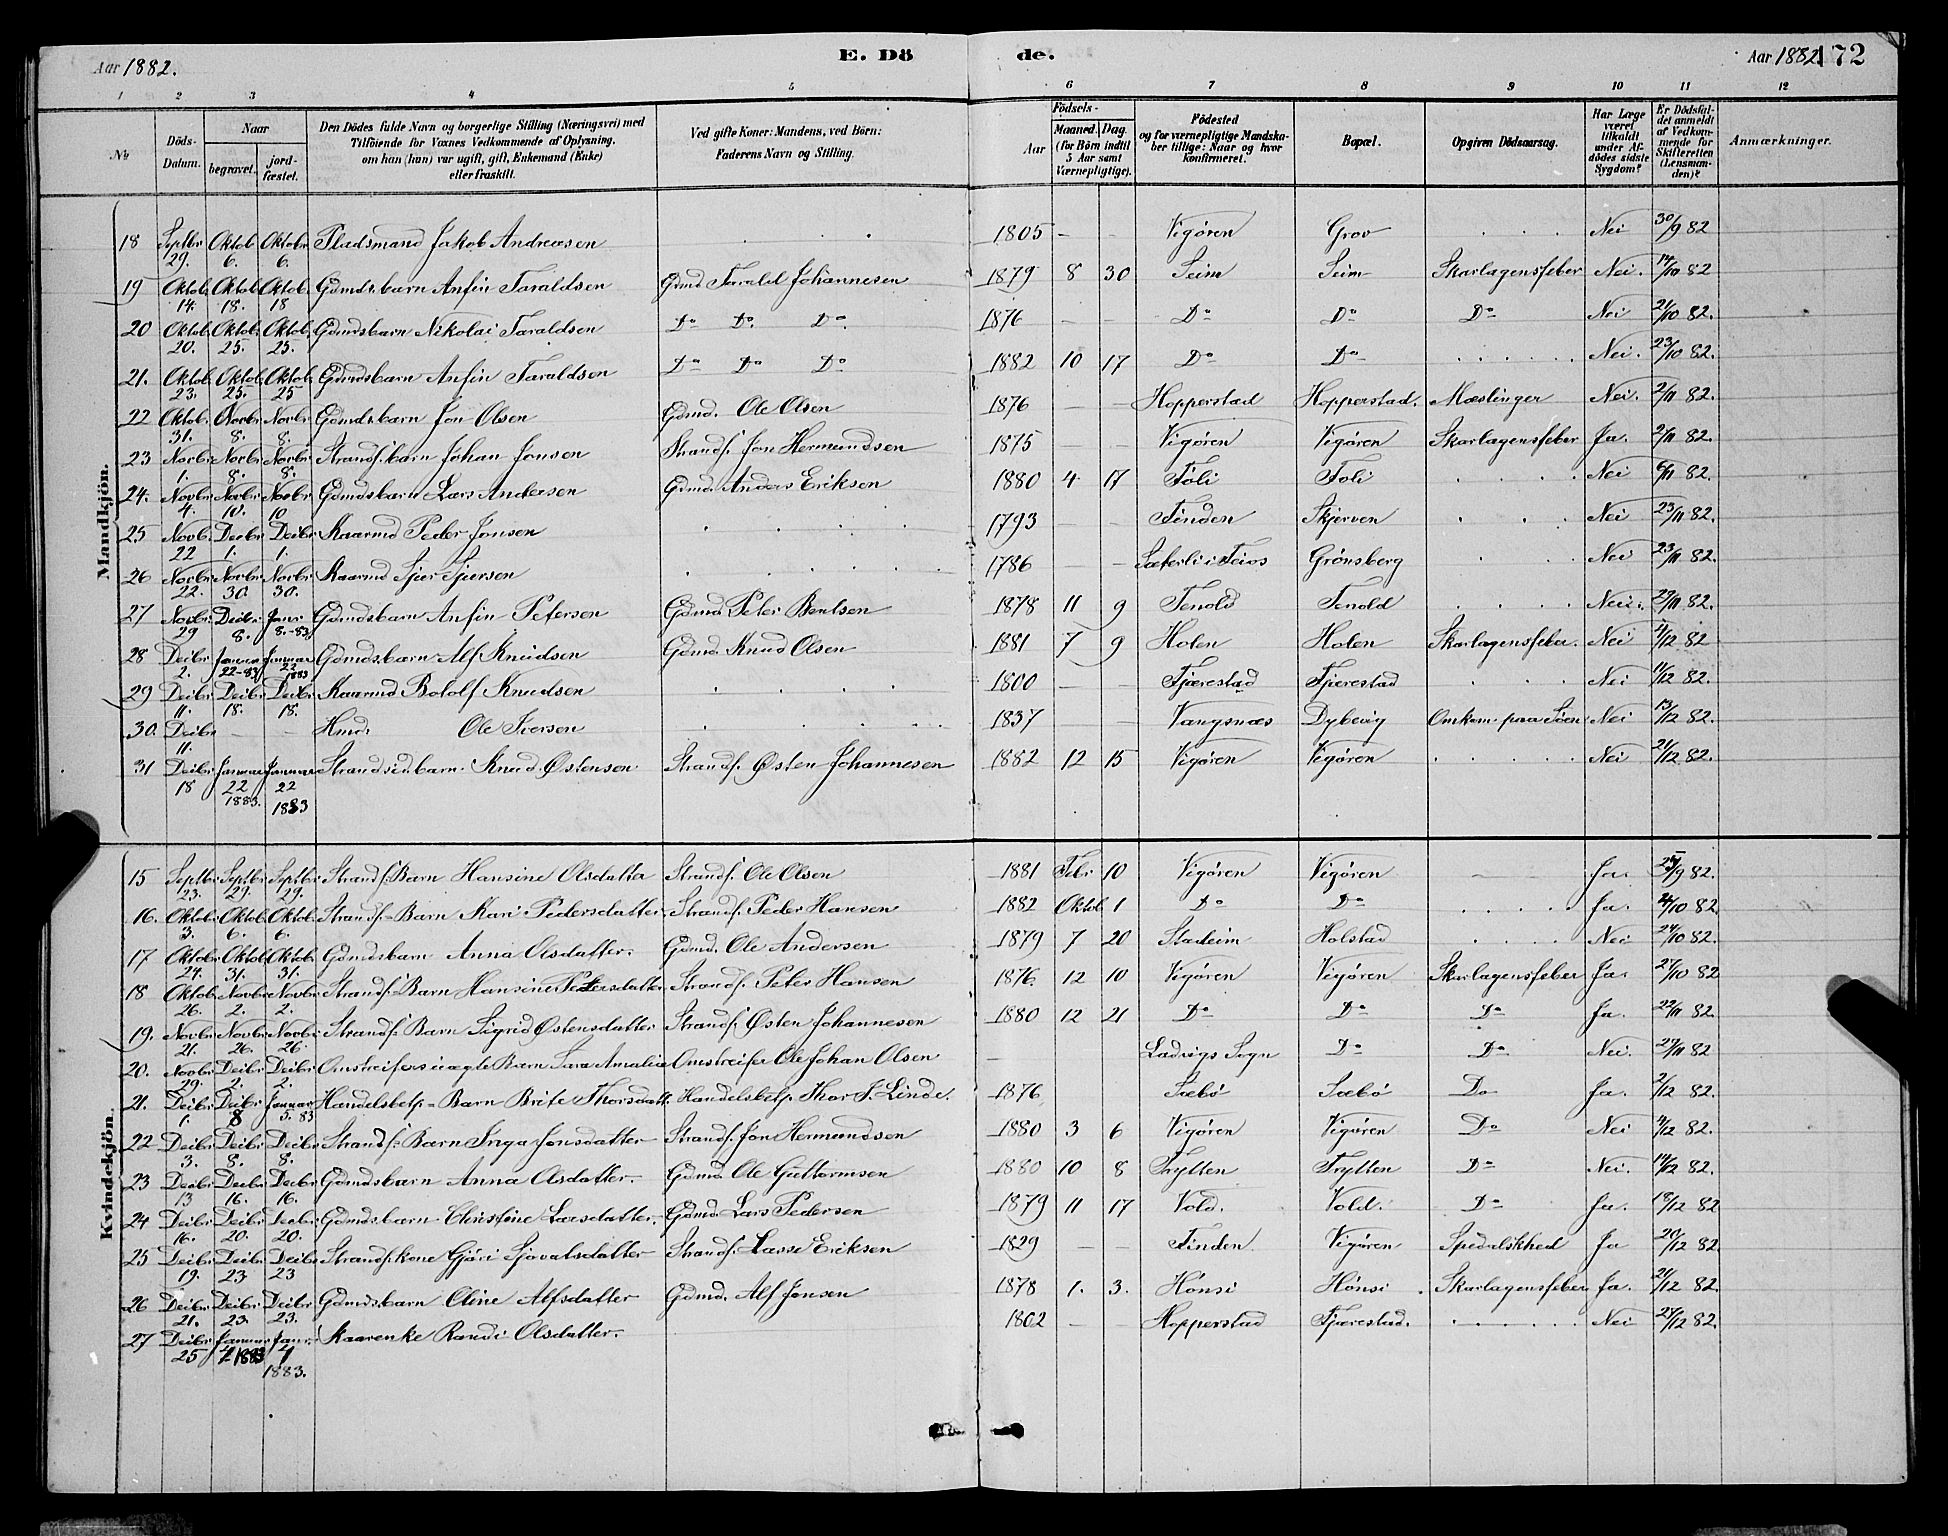 Aar 1882. E. Dö de. Aar 1882. 172
1 2 3 4 5 6 7 8 9 10 11 12
No
Döds-Datum.
Naar
begravet.
jord-fæstet.
Den Dödes fulde Navn og borgerlige Stilling (Næringsvei) med
Tilföiende for Voxnes Vedkommende af Oplysning,
om han (hun) var ugift, gift, Enkemand (Enke)
eller fraskilt.
Ved gifte Koner: Mandens, ved Börn:
Faderens Navn og Stilling.
Födsels-
Aar Maaned. Dag.
(for Börn indtil
5 Aar samt
Værnepligtige).
Födested
og for værnepligtige Mandska-
ber tillige: Naar og hvor
konfirmeret.
Bopæl.
Opgiven Dödsaarsag.
Har Læge
været
tilkaldt
under Af-
dödes sidste
Sygdom?
Er Dödsfal-
det anmeldt
af Vedkom-
mende for
Skifteretten
(Lensman-
den)?
Anmærkninger.
Mandkjön.
18 Septbr 29. Oktob 6. Oktobr 6. Pladsmand Jakob Andreasen 1805 - - Vigøren Grov Nei 30/9 82
19 Oktob. 14. Oktob. 18. Oktob. 18 Gdmdsbarn Anfin Taraldsen Gdmd Tarald Johannesen 1879 8 30 Seim Seim Skarlagensfeber Nei. 14/10 82
20 Oktob. 20. Oktob. 25. Oktob. 25. Gdmdsbarn Nikolai Taraldsen Do Do. Do. 1876 - - Do Do Do Nei 21/10 82.
21. Oktob. 23. Oktob. 25. Oktob. 25 Gdmdsbarn Anfin Taraldsen Do Do Do 1882 10 17 Do Do Nei. 23/10 82.
22 Oktob. 31. Novbr 8. Novbr 8. Gdmdsbarn Jon Olsen Gdmd. Ole Olsen 1876 - - Hopperstad Hopperstad. Mæslinger Nei. 2/11 82.
23 Novbr 1. Novbr 8. Novbr 8. Strands.barn Johan Jonsen Strands. Jon Hermundsen 1875 - - Vigøren Vigøren Skarlagensfeber Ja. 2/11 82.
24. Novbr 4. Novbr 10. Novbr 10 Gdmdsbarn Lars Andersen Gdmd. Anders Eriksen 1880 4 17 Føli Føli Nei 6/11 82.
25 Novb. 22 Decbr 1. Deibr 1. Kaarmd Peder Jonsen 1793 - - Finden Skjerven Nei 23/11 82.
26 Novbr 22. Novbr 30. Novbr 30. Kaarmd Sjur Sjursen 1786 - - Sæterli i Feios Grønsberg Nei 23/11 82.
27 Novbr 29 Deibr 8. Janr 8.-83 Gdmdsbarn Anfin Petersen Gdmd. Peter Bentsen 1878 11 9 Tenold Tenold Nei. 29/11 82.
28 Deibr 2. Januar 22-83 Januar 22 1883 Gdmdsbarn Alf Knudsen Gdmd. Knud Olsen 1881 7 9 Holen Holen Skarlagensfeber. Nei 4/12 82
29 Deibr 11. Deibr 18. Deibr 18. Kaarmd Botolf Knudsen 1800 - - Fjærestad Fjærestad Nei 11/12 82.
30. Deibr 11. - - Hmd. Ole Iversen 1837 - - Vangsnæs Dybevig Omkom paa Søen Nei 13/12 82.
31 Deibr 18 Januar 22 1883. Januar 22 1883 Strandsidbarn Knud Østensen Strands. Østen Johannesen 1882 12 15 Vigøren Vigøren Nei 21/12 82.
Kvindekjön.
15 Septbr 23. Septbr 29. Septbr 29. Strands. Barn Hansine Olsdatter Strands. Ole Olsen 1881 Febr 10 Vigøren Vigøren - - Ja. /9 82.
16. Oktobr 3. Oktob. 6. Oktob. 6. Strands.-Barn Kari Pedersdatter Strands. Peder Hansen 1882 Oktob. 1 Do Do Ja. /10 82
17 Oktobr 24. Oktob. 31. Oktob. 31. Gdmdsbarn Anna Olsdatter. Gdmd. Ole Andersen 1879 7 20 Stadeim Holstad Nei 24/10 82.
18 Oktob. 26. Novbr 2. Novbr 2. Strands.-Barn Hansine Petersdatter Strands. Peter Hansen 1876. 12 10 Vigøren Vigøren Skarlagensfeber Ja. 27/10 82
19. Novbr 21. Novbr 26. Novbr 26. Strands.-Barn Sigrid Østensdatter Strands. Østen Johannesen 1880 12 21 Do Do Do Ja. 22/11 82.
20. Novbr 29. Deibr 2. Deibr 2. Omstreifers uægte Barn Sara Amalia Omstreifer Ole Johan Olsen - Ladvigs Sogn Do Do Nei. 29/11 82
21. Deibr 1. Deibr 8 Januar 5. 83 Handelsbetj-Barn Brite Thorsdatt. Handelsbetj. Thor J. Linde. 1876 Sæbø Sæbø Do Ja. 2/12 82.
22 Deibr 3. Deibr 8. Deibr 8. Strands.-Barn Inga Jonsdatter Strands. Jon Hermundsen 1880 3 6 Vigøren Vigøren Do Nei 4/12 82.
23 Deibr 13 Deibr 16. Deibr 16. Gdmdsbarn Anna Olsdatter. Gdmd. Ole Guttormsen 1880 10 8 Frytten Frytten Do Nei. 14/12 82.
24 Deibr 16. Deibr 20. Decbr 20. Gdmdsbarn Christine Larsdatter. Gdmd. Lars Pedersen 1879 11 17 Vold. Vold. Do Ja. 18/12 82
25 Deibr 19. Deibr 23 Deibr 23 Strands.kone Gjøri Sjovatsdatter Strands. Lasse Eriksen 1829 - - Finden Vigøren Spedalskhed Ja 20/12 82.
26 Deibr 21. Deibr 23. Deibr 23. Gdmdsbarn Oline Alfsdatter Gdmd. Alf Jonsen 1878 1. 3. Hønsi Hønsi Skarlagensfeber Ja. 21/12 82.
27 Deibr 25 Januar 1883 Janr. 1883. Kaarenke Randi Olsdatter. 1802 - - Hopperstad Fjærestad. Nei 27/12 82.